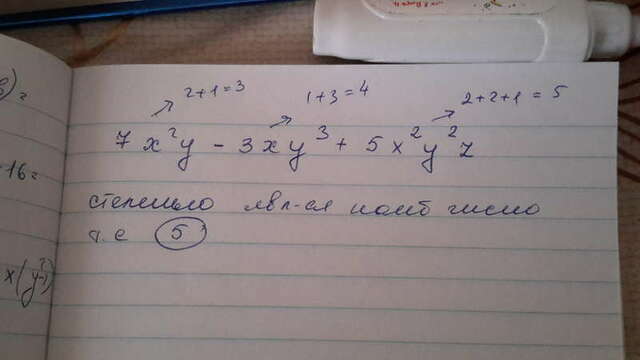 2+1=3 1+3=4 2+2+1=5
7x²y - 3xy³ + 5x²y²z
степенью явл-ся наиб число
т.е 5
16=